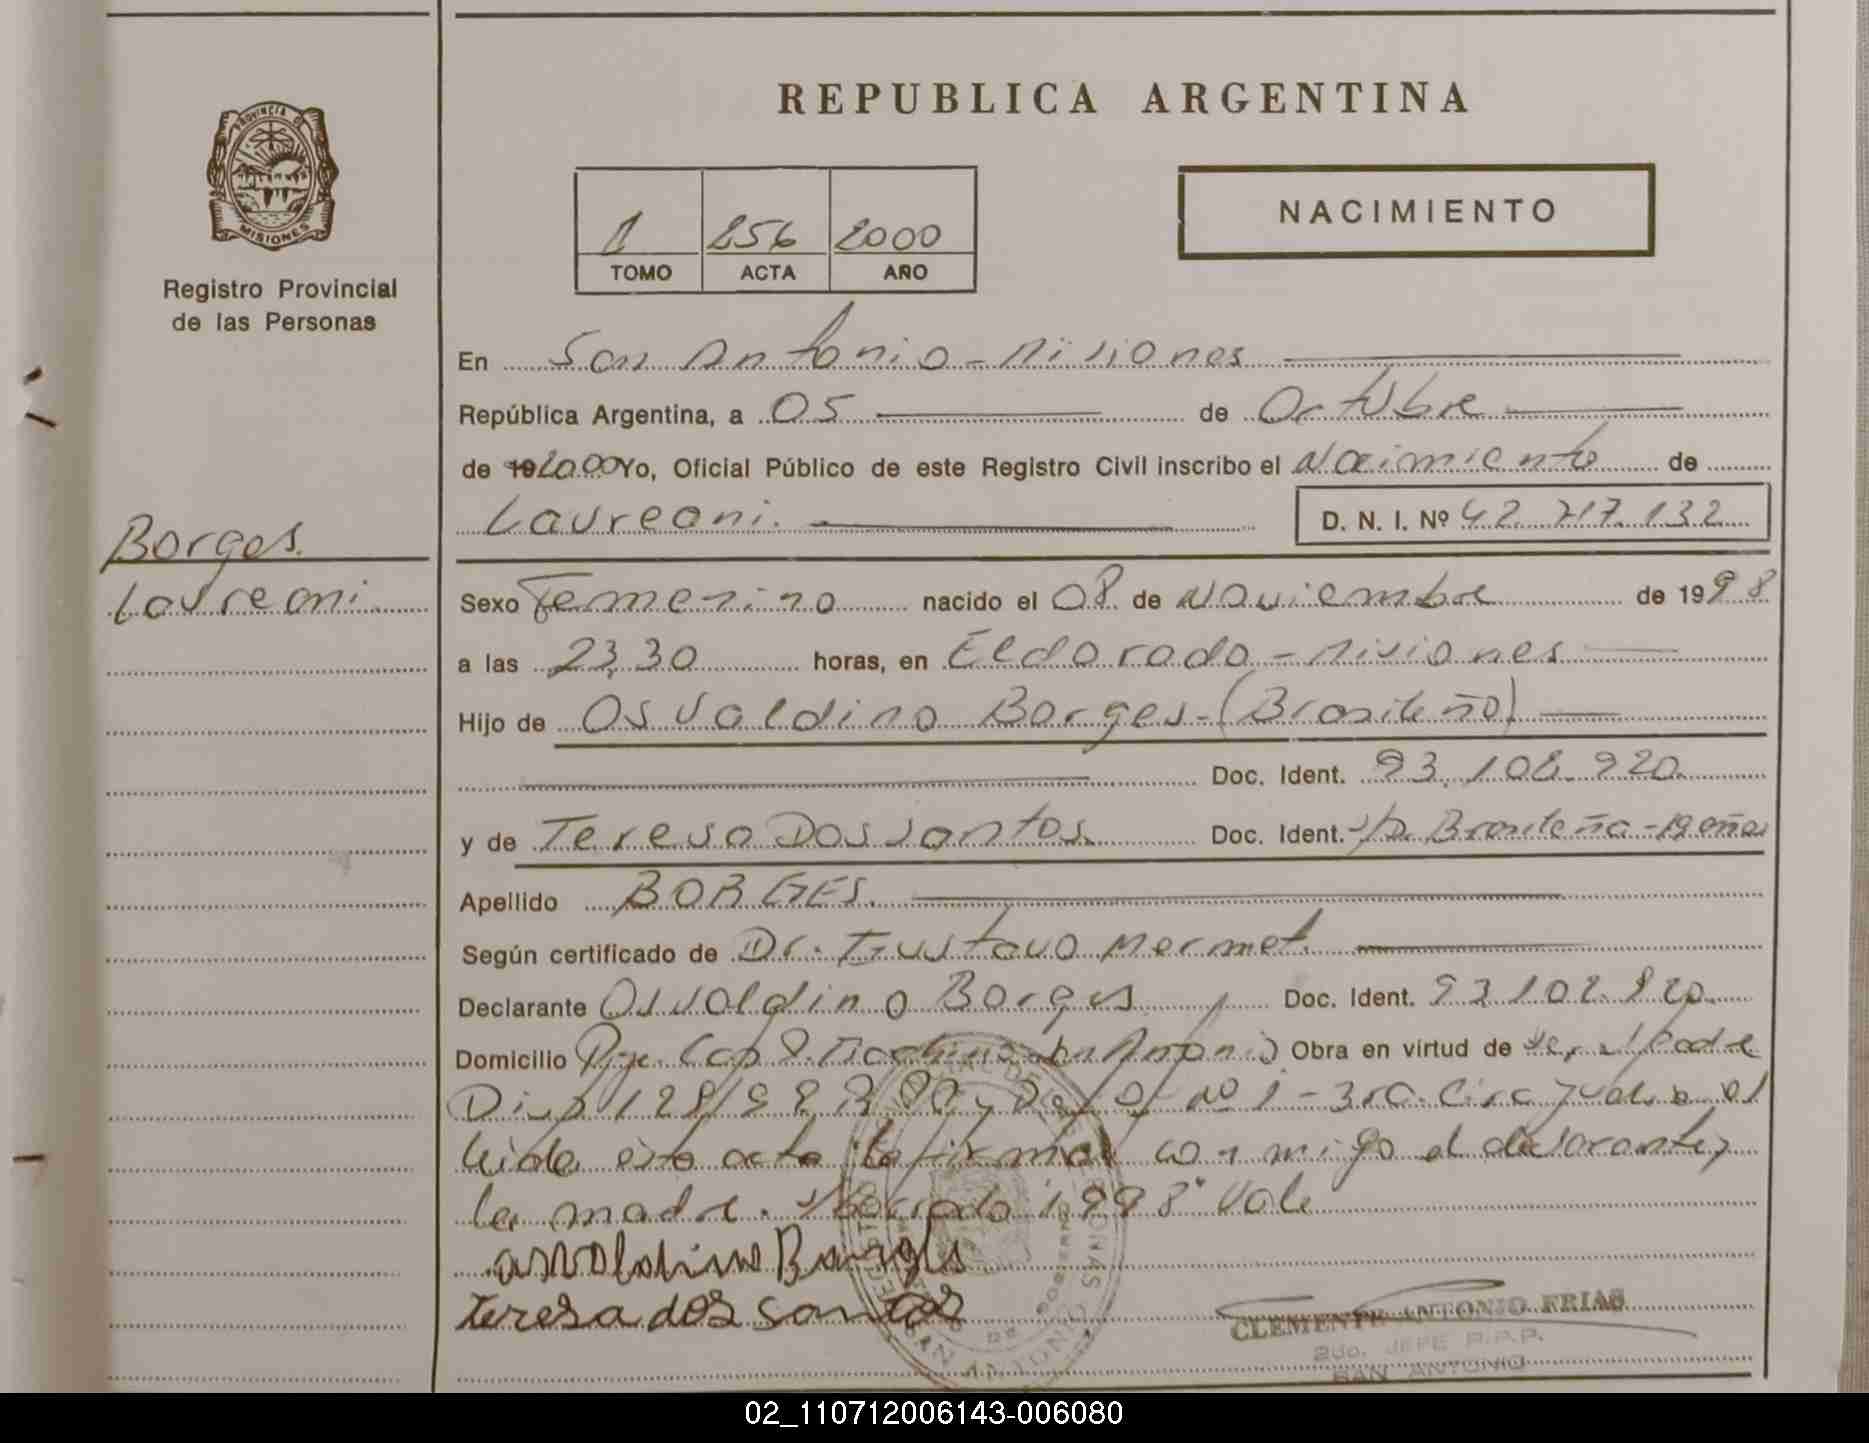 REPUBLICA ARGENTINA
PROVINCIA D
MISIONES
Registro Provincial
de las Personas
NACIMIENTO
1 256 2000
TOMO ACTA AÑO
En San Antonio - Misiones
República Argentina, a 05 de Octubre
de 19 2000 Yo, Oficial Público de este Registro Civil inscribo el Nacimiento de
Laureani. D. N. I. Nº 42.717.132
Borges
Laureani
Sexo Femenino nacido el 08 de Noviembre de 1998
a las 23,30 horas, en Eldorado - Misiones
Hijo de Osvaldino Borges - (Brasileño)
Doc. Ident. 93.108.920
y de Teresa Dos Santos. Doc. Ident. S/D. Brasileña - 19 años
Apellido BORGES.
Según certificado de Dr. Gustavo Mermet.
Declarante Osvaldino Borges Doc. Ident.
Domicilio San Antonio Obra en virtud de ser el Padre
Nº 1 - 3ra. Circ
leida esta acta la firman conmigo el declarante y
la madre. 1998" Vale
osvoldino Borges
teresa dos santos
CLEMENTE ANTONIO FRIAS
2do. JEFE R.P.P.
SAN ANTONIO
02_110712006143-006080